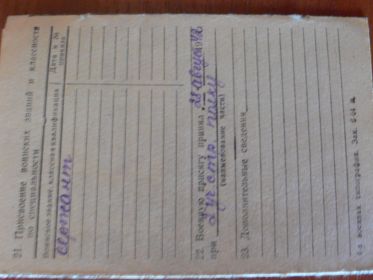 21. Присвоение воинских званий и классности
по специальности
Воинское звание, классная квалификация
Дата и №
приказа
сержант
22. Военную присягу принял 23 августа
при 2 уч. отр. полку
(наименование части)
23. Дополнительные сведения
4-я военная типография. Зак.